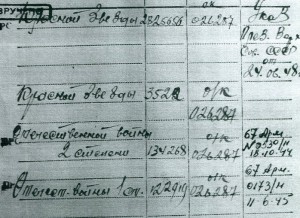 ВРУЧ
РС
Красной Звезды 2325656 026287 Указ
През. Вер.
Сов. СССР
от
24.06.48
Красной Звезды 3522 о/к
026287
Отечественной войны о/к 67 Арм.
2 степени 134268 026287 №0230/н
18.10.44
Отечест. войны 1 ст. 122919 о/к 67 Арм.
026287 0173/н
11.6.45